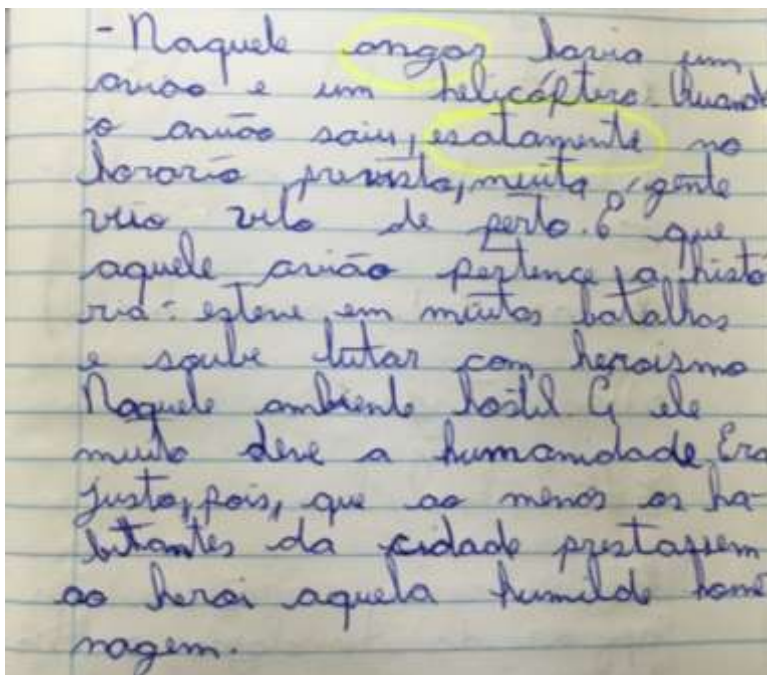 - Naquele angar havia um
avião e um helicóptero. Quando
o avião saiu, esatamente no
horario previsto, muita gente
veio velo de perto. É que
aquele avião pertence a histó
ria: esteve em muitas batalhas
e soube lutar com heroismo
Naquele ambiente hostil. A ele
muito deve a humanidade. Era
justo, pois, que ao menos os ha-
bitantes da cidade prestassem
ao heroi aquela humilde home
nagem.